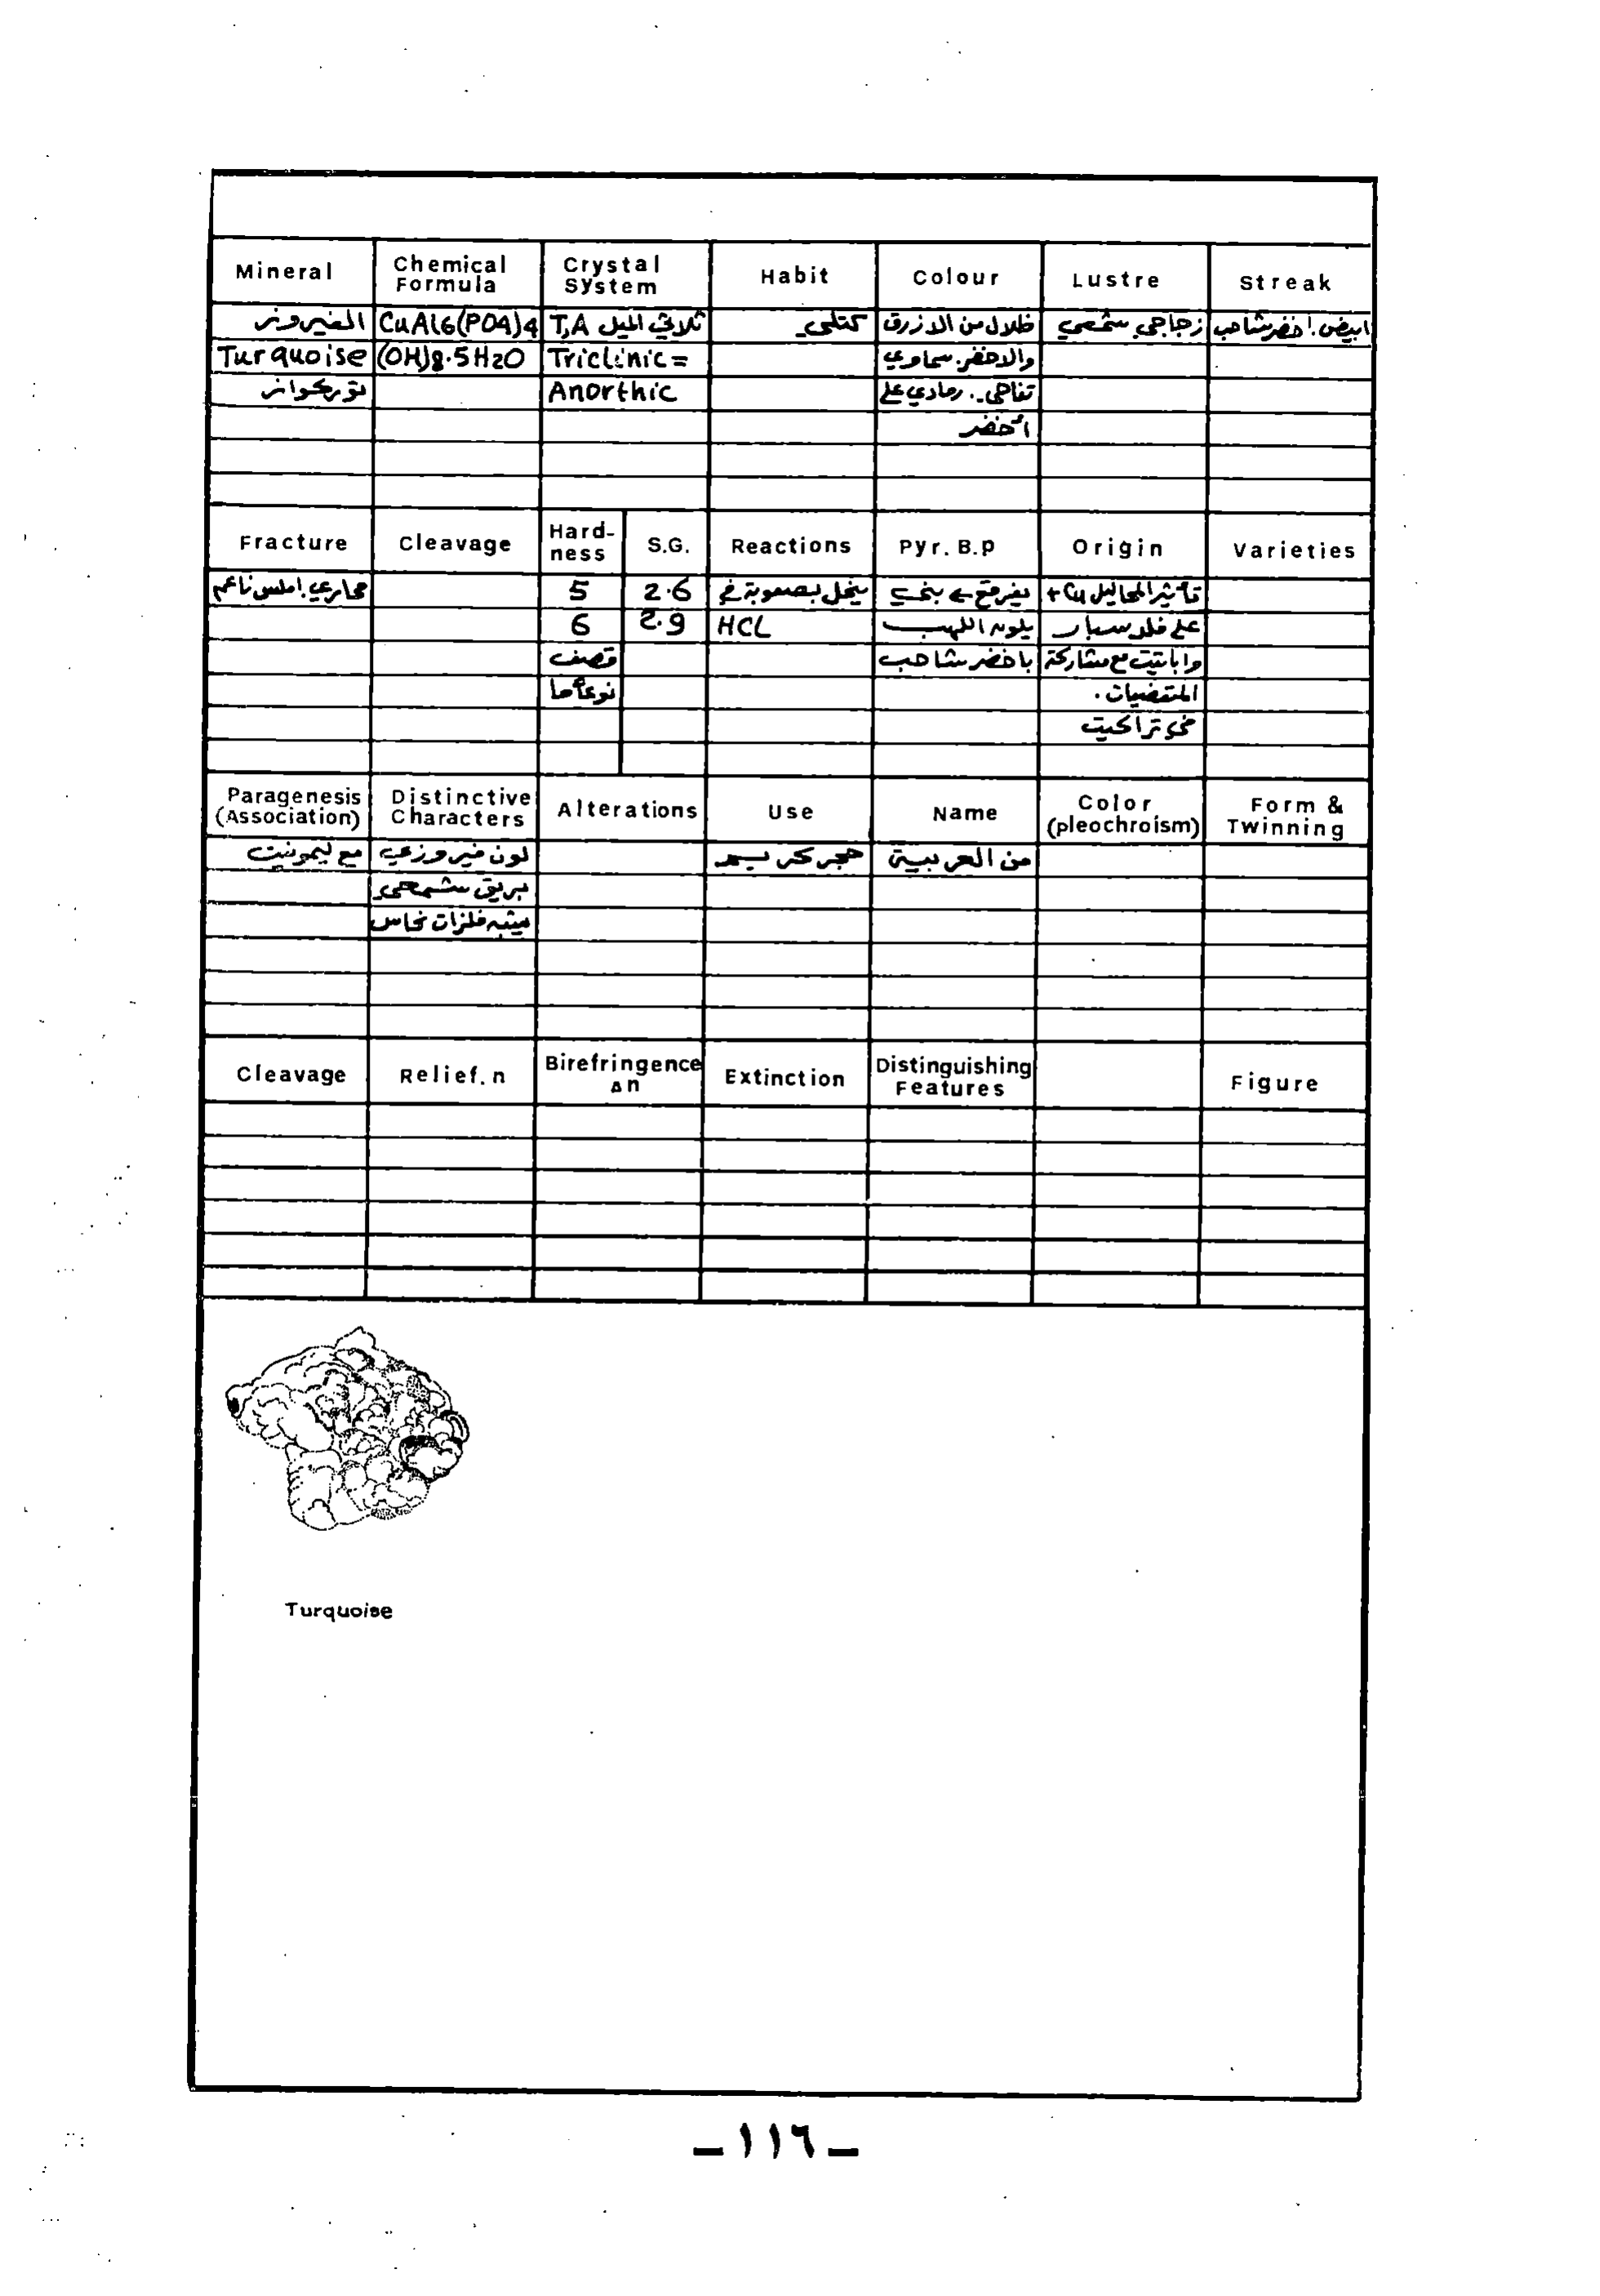 Mineral Chemical Formula Crystal System Habit Colour Lustre Streak
الفيروز CuAl6(PO4)4 T,A ثلاثي الميل كتلي ظلال من الازرق زجاجي شمعي ابيض، اخضر شاحب
Turquoise (OH)8·5H2O Triclinic= والاخضر. سماوي
توركواز Anorthic تفاحي.. رمادي على
أخضر
Fracture Cleavage Hard-ness S.G. Reactions Pyr. B.p Origin Varieties
محاري، املس ناعم 5 2.6 ينحل بصعوبة في يفرقع ← بني تأثير المحاليل Cu+
6 2.9 HCL يلون اللهب على فلدسبار
قصف باخضر شاحب وابايتت مع مشاركة
نوعاً ما
في تراكيت
Paragenesis (Association) Distinctive Characters Alterations Use Name Color (pleochroism) Form & Twinning
مع ليمونيت لون فيروزي حجر كريم من العربية
بريق شمعي
يشبه فلزات نحاس
Cleavage Relief. n Birefringence Δn Extinction Distinguishing Features Figure
Turquoise
– ١١٦ –